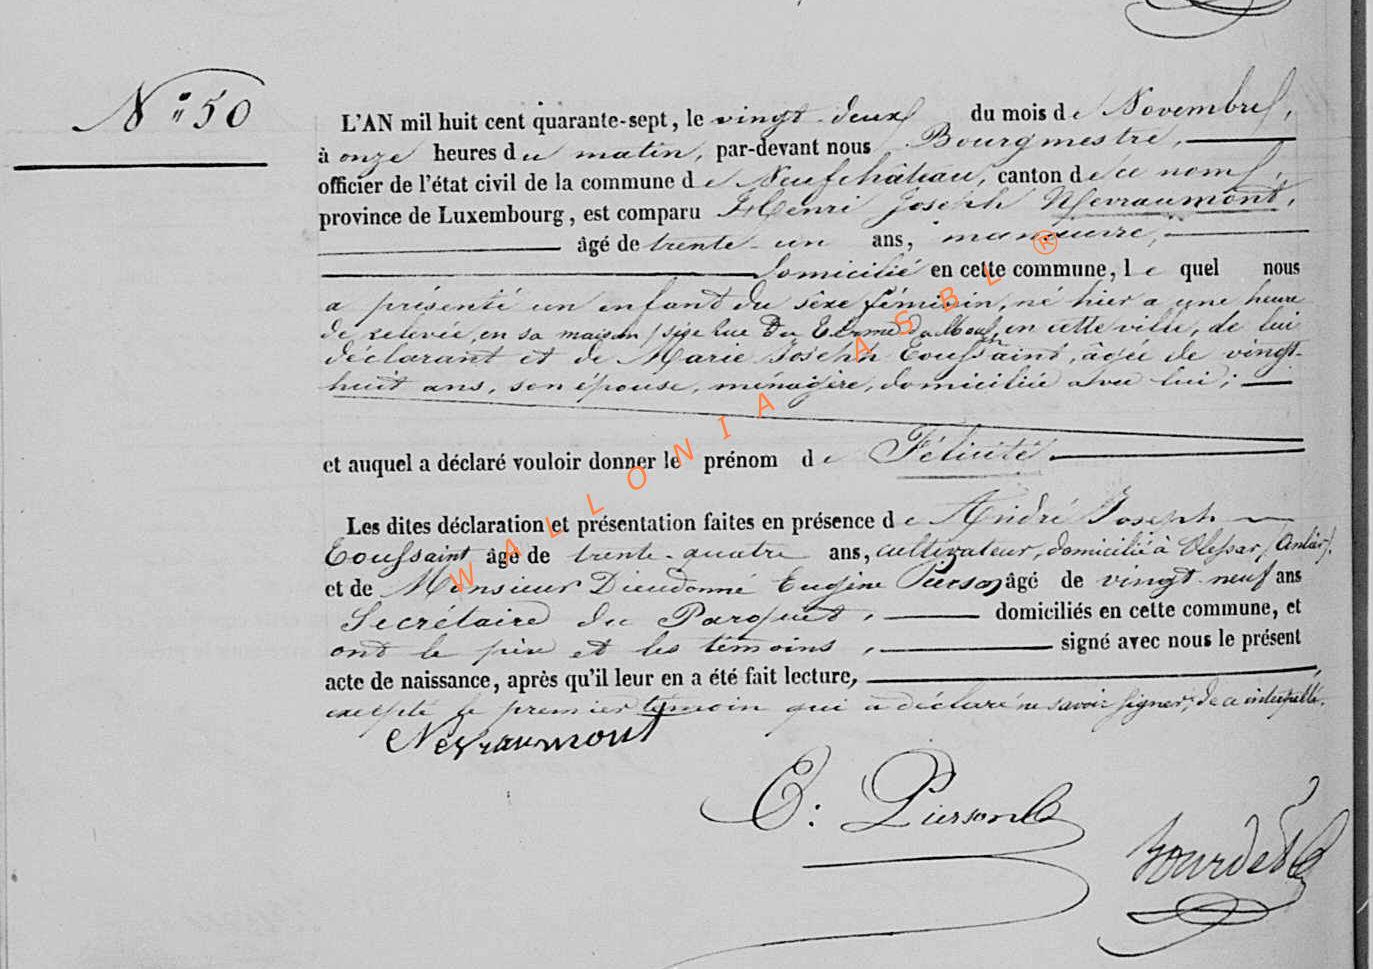 N° 50
L'AN mil huit cent quarante-sept, le vingt-deux du mois de Novembre,
à onze heures du matin, par-devant nous Bourgmestre,
officier de l'état civil de la commune de Neufchâteau, canton de ce nom,
province de Luxembourg, est comparu Henri Joseph Nevraumont,
âgé de trente-un ans, manœuvre,
domicilié en cette commune, lequel nous
a présenté un enfant du sexe féminin, né hier a une heure
de relevée, en sa maison, sise Rue du en cette ville, de lui
déclarant et de Marie Joseph Toussaint, âgée de vingt-
huit ans, son épouse, ménagère, domiciliée avec lui;
et auquel a déclaré vouloir donner le prénom de Félicité.
Les dites déclaration et présentation faites en présence de André Joseph
Toussaint âgé de trente-quatre ans, cultivateur, domicilié à
et de Monsieur Dieudonné Eugène Pierson âgé de vingt-neuf ans
Secrétaire du Parquet, domiciliés en cette commune, et
ont le père et les témoins, signé avec nous le présent
acte de naissance, après qu'il leur en a été fait lecture,
excepté le premier témoin qui a déclaré ne savoir signer, de ce interpellé.
Nevraumont
E: Pierson
Bourdet
WALLONIA ASBL ®